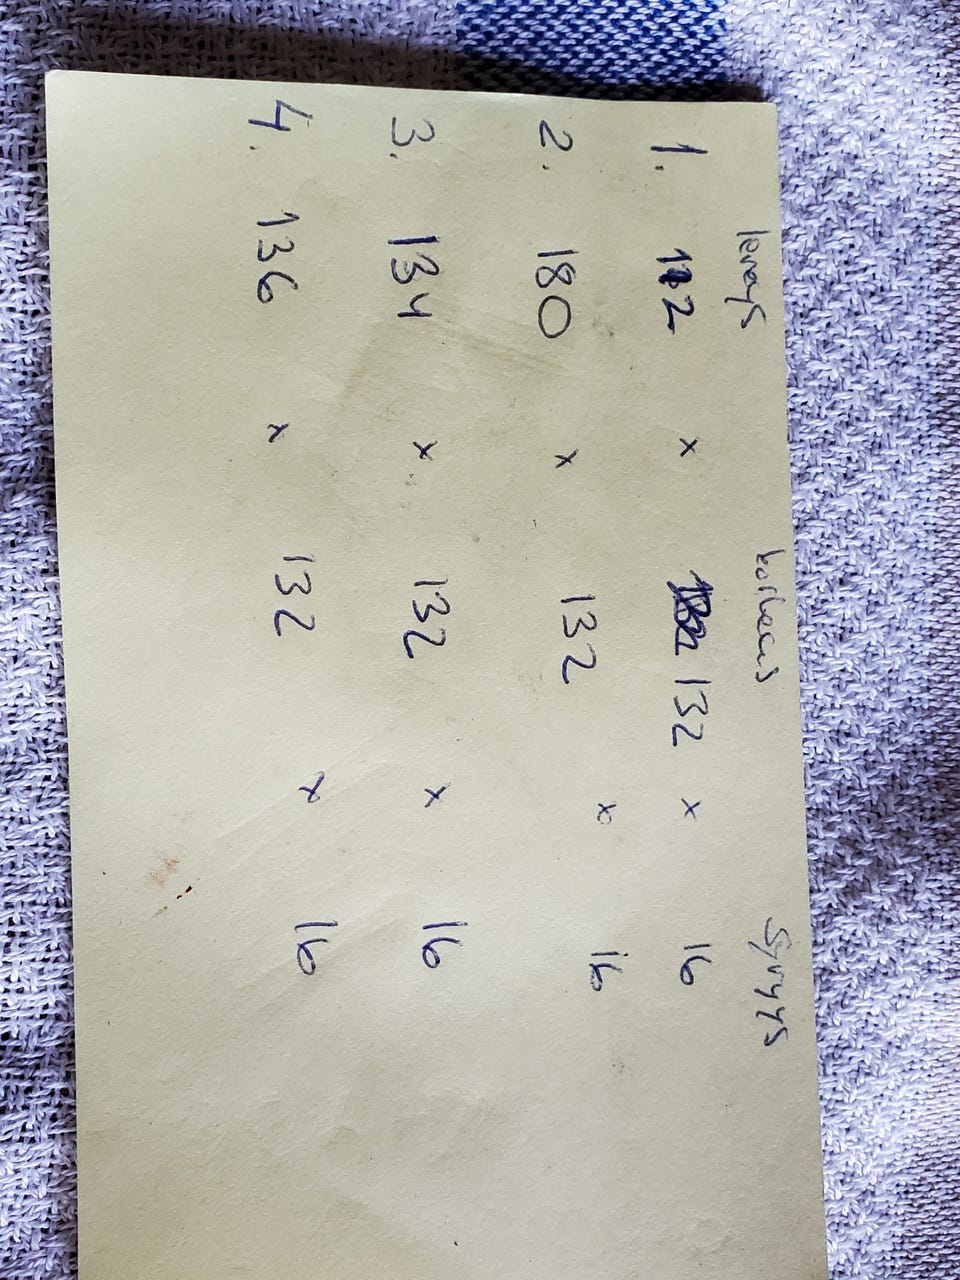 leveys korkeus syvyys
1. 112 x 132 x 16
2. 180 x 132 x 16
3. 134 x 132 x 16
4. 136 x 132 x 16